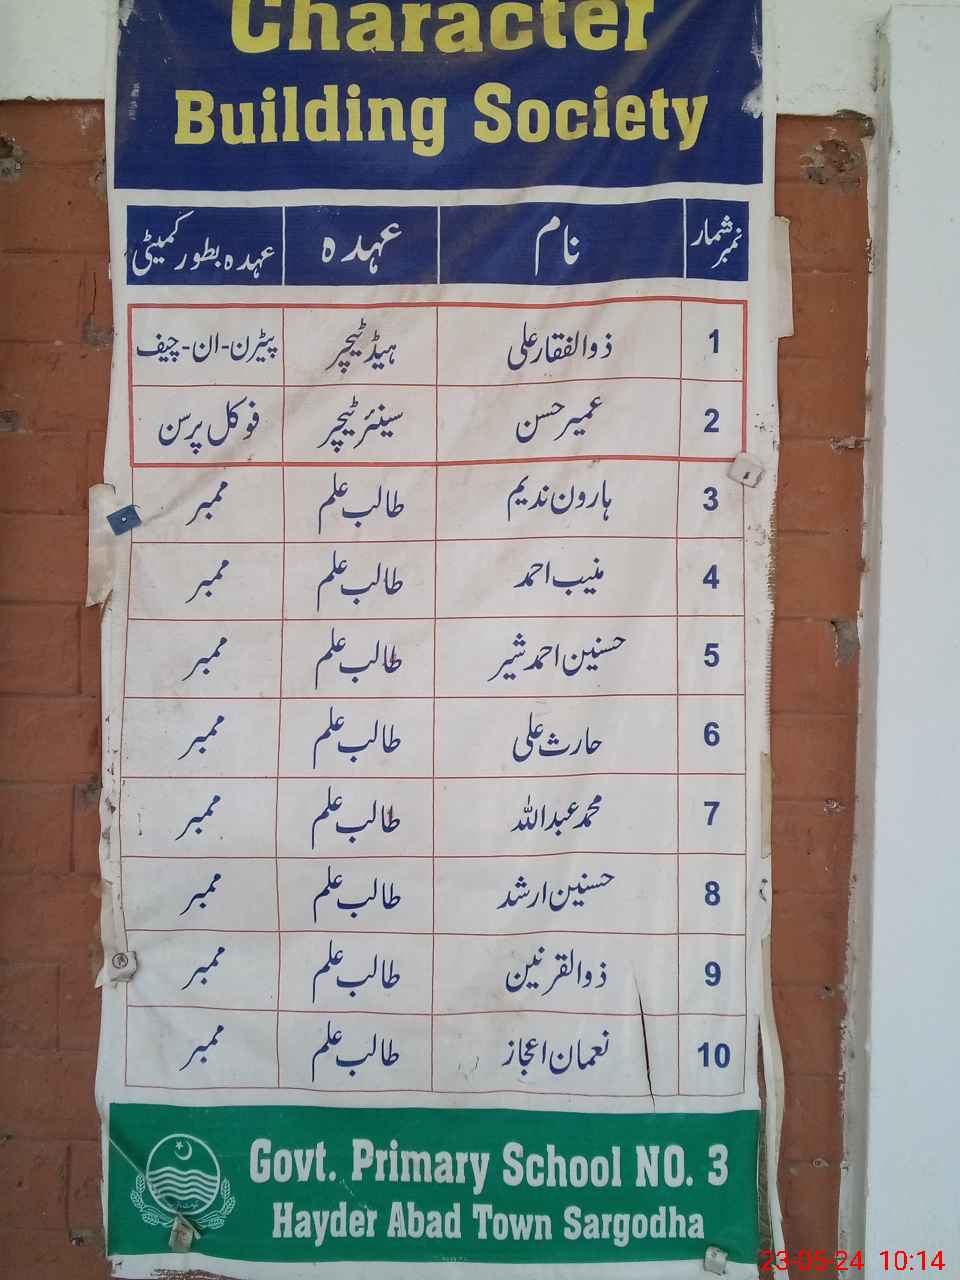 Character
Building Society
نمبر شمار نام عہدہ عہدہ بطور کمیٹی
1 ذوالفقار علی ہیڈ ٹیچر پیٹرن-ان-چیف
2 عمیر حسن سینئر ٹیچر فوکل پرسن
3 ہارون ندیم طالب علم ممبر
4 منیب احمد طالب علم ممبر
5 حسنین احمد شیر طالب علم ممبر
6 حارث علی طالب علم ممبر
7 محمد عبداللہ طالب علم ممبر
8 حسنین ارشد طالب علم ممبر
9 ذوالقرنین طالب علم ممبر
10 نعمان اعجاز طالب علم ممبر
Govt. Primary School NO. 3
Hayder Abad Town Sargodha
23-05-24 10:14